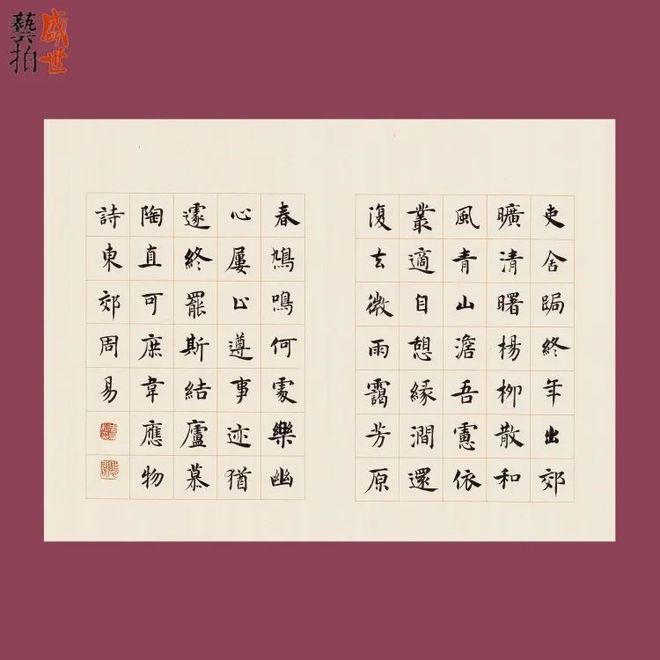 盛世
藝拍
吏舍跼終年出郊
曠清曙楊柳散和
風青山澹吾慮依
叢適自憩緣澗還
復去微雨靄芳原
春鳩鳴何處樂幽
心屢止遵事迹猶
遽終罷斯結廬慕
陶直可庶韋應物
詩東郊周易